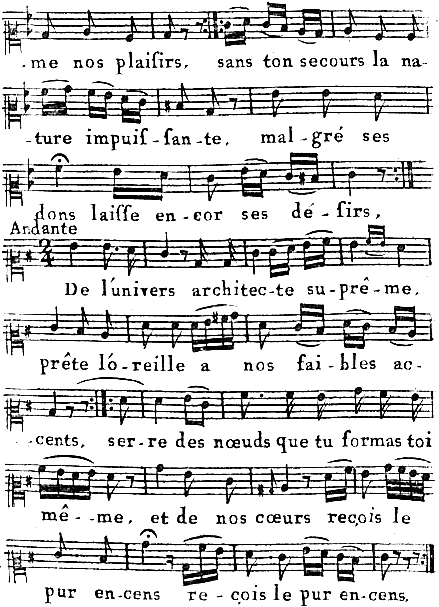 -me nos plaisirs, sans ton secours la na-
-ture impuis-san-te, mal-gré ses
dons laisse en-cor ses dé-sirs,
Andante
De l'univers architec-te su-prê-me,
prête ló-reille a nos fai-bles ac-
-cents, ser-re des nœuds que tu formas toi
mê--me, et de nos cœurs reçois le
pur en-cens re-çois le pur en-cens,